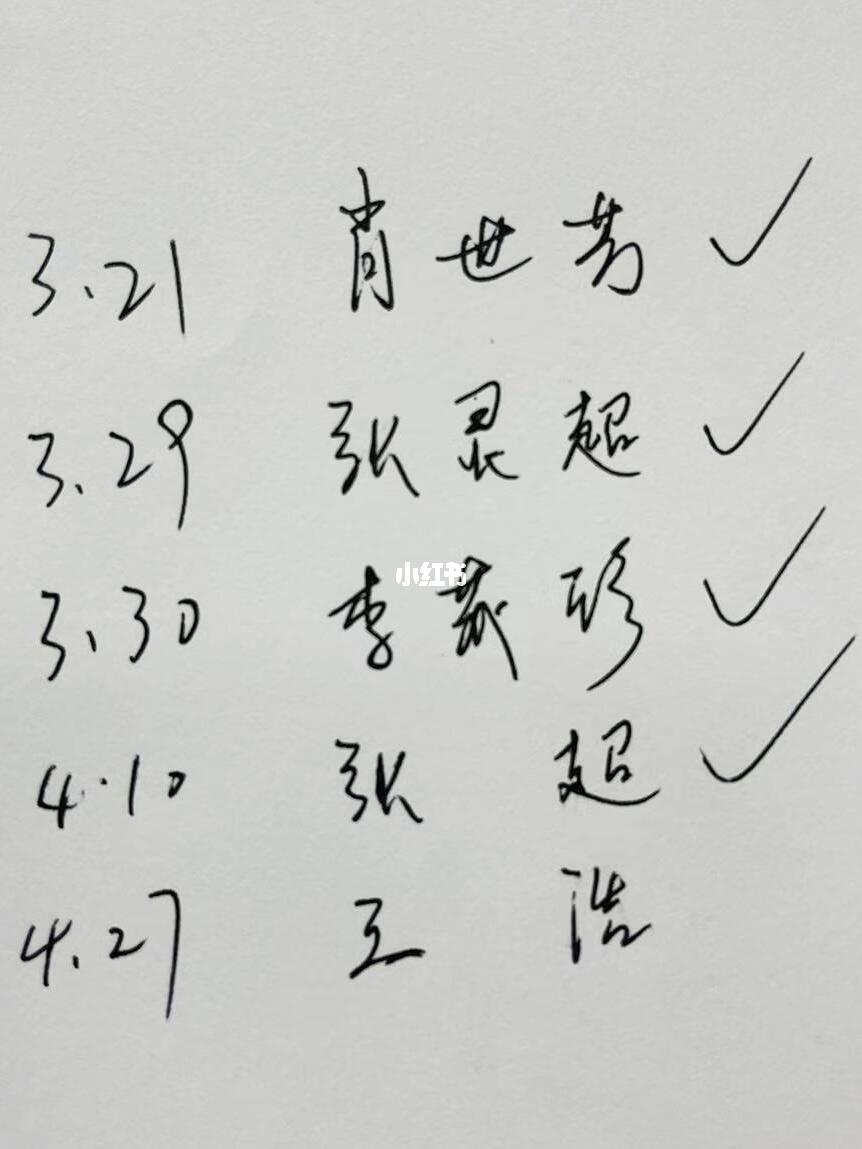 3.21 肖世芳 ✓
3.29 张灵超 ✓
小红书
3.30 李茂珍 ✓
4.10 张 超 ✓
4.27 王 浩